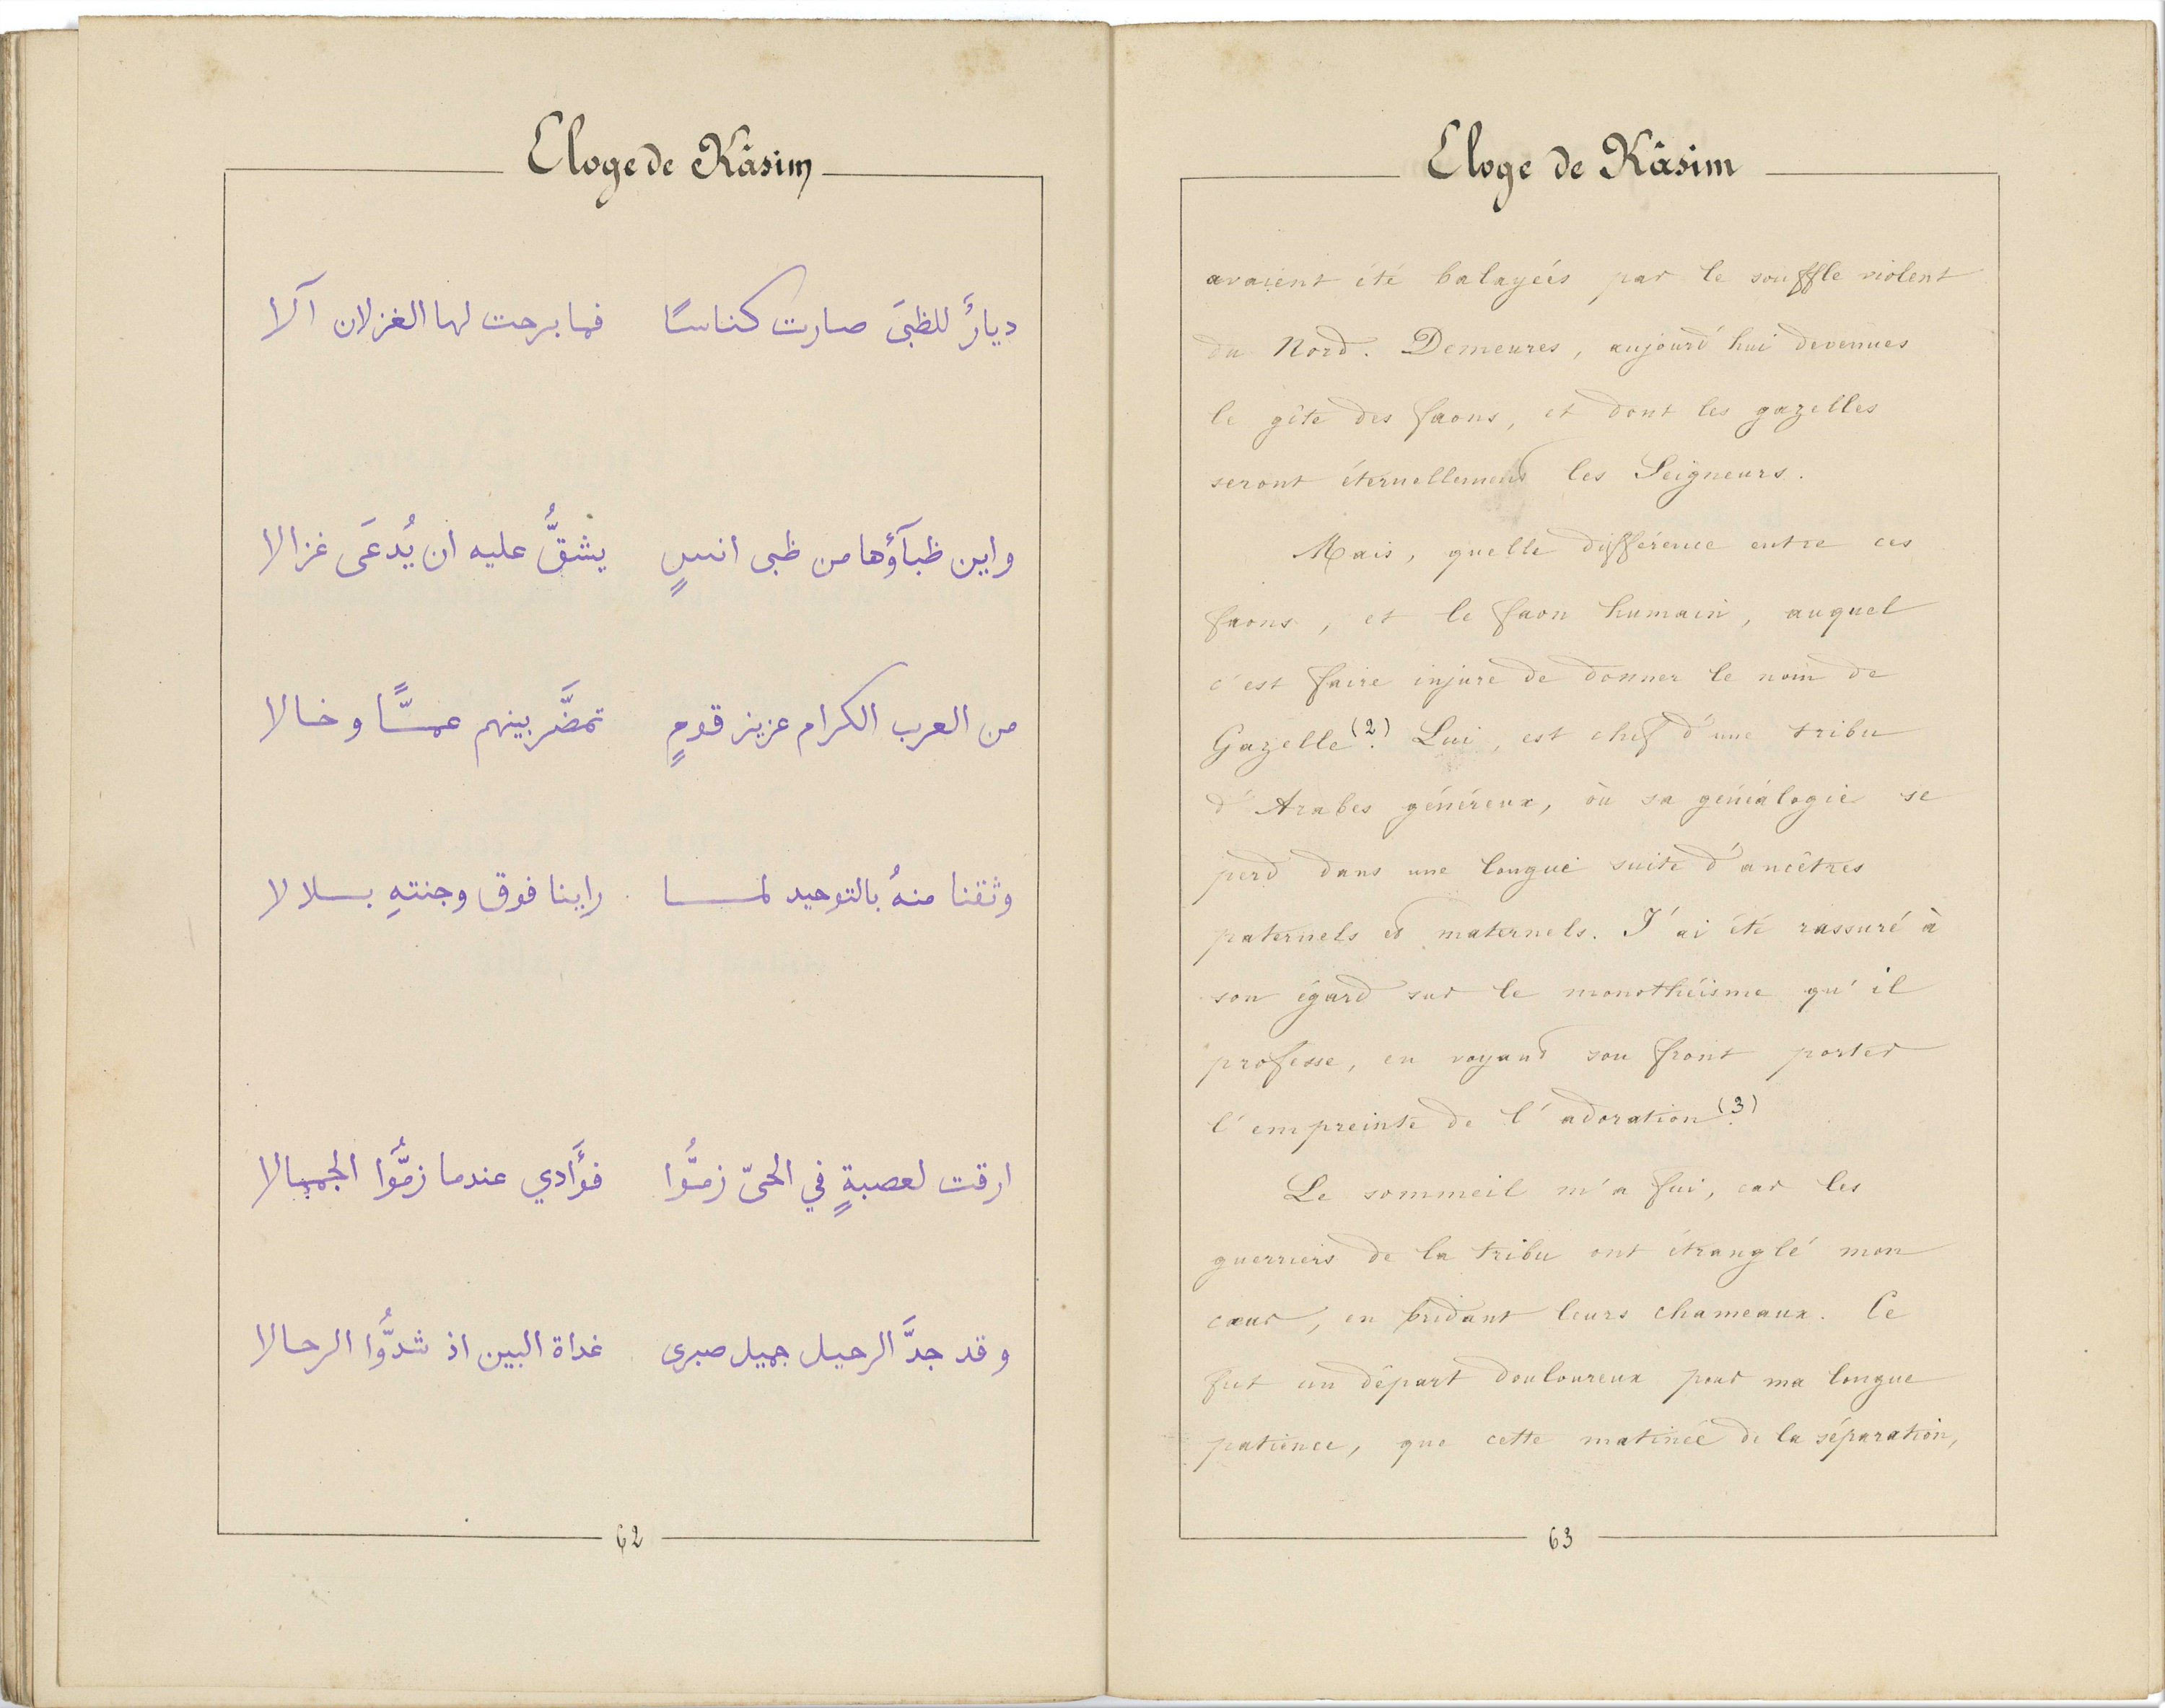 Eloge de Kâsim
ديارٌ للظبىَ صارت كناسًا فما برحت لها الغزلان آلا
واين ظبآؤها من ظبى انسٍ يشقُّ عليه ان يُدعَى غزالا
من العرب الكرام عزيز قومٍ تمضَّر بينهم عمًّا وخالا
وثقنا منهُ بالتوحيد لما راينا فوق وجنتهِ بلالا
ارقت لعصبةٍ في الحىّ زمُّوا فؤَادي عندما زمُّوا الجمالا
وقد جدَّ الرحيل جميل صبرى غداة البين اذ شدُّوا الرحالا
62
Eloge de Kâsim
avaient été balayées par le souffle violent
du Nord. Demeures, aujourd'hui devenues
le gîte des faons, et dont les gazelles
seront éternellement les Seigneurs.
Mais, quelle différence entre ces
faons, et le faon humain, auquel
c'est faire injure de donner le nom de
Gazelle (2). Lui, est chef d'une tribu
d'Arabes généreux, où sa généalogie se
perd dans une longue suite d'ancêtres
paternels et maternels. J'ai été rassuré à
son égard sur le monothéisme qu'il
professe, en voyant son front porter
l'empreinte de l'adoration (3).
Le sommeil m'a fui, car les
guerriers de la tribu ont étranglé mon
cœur, en bridant leurs chameaux. Ce
fut un départ douloureux pour ma longue
patience, que cette matinée de la séparation,
63